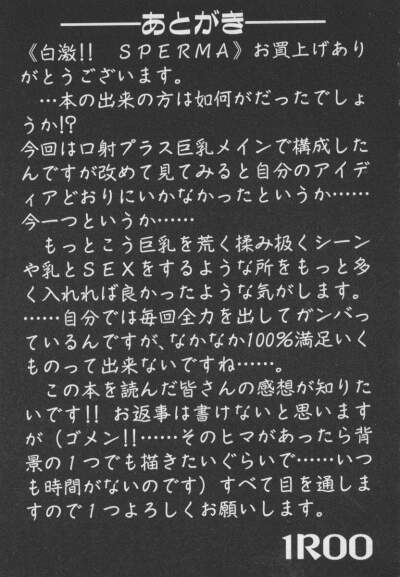 あとがき
《白激!! SPERMA》お買上げあり
がとうございます。
…本の出来の方は如何がだったでしょ
うか!?
今回は口射プラス巨乳メインで構成した
んですが改めて見てみると自分のアイデ
ィアどおりにいかなかったというか……
今一つというか……
もっとこう巨乳を荒く揉み扱くシーン
や乳とSEXをするような所をもっと多
く入れれば良かったような気がします。
……自分では毎回全力を出してガンバっ
ているんですが、なかなか100%満足いく
ものって出来ないですね……。
この本を読んだ皆さんの感想が知りた
いです!! お返事は書けないと思います
が（ゴメン!!……そのヒマがあったら背
景の1つでも描きたいぐらいで……いつ
も時間がないのです）すべて目を通しま
すので1つよろしくお願いします。
1ROO